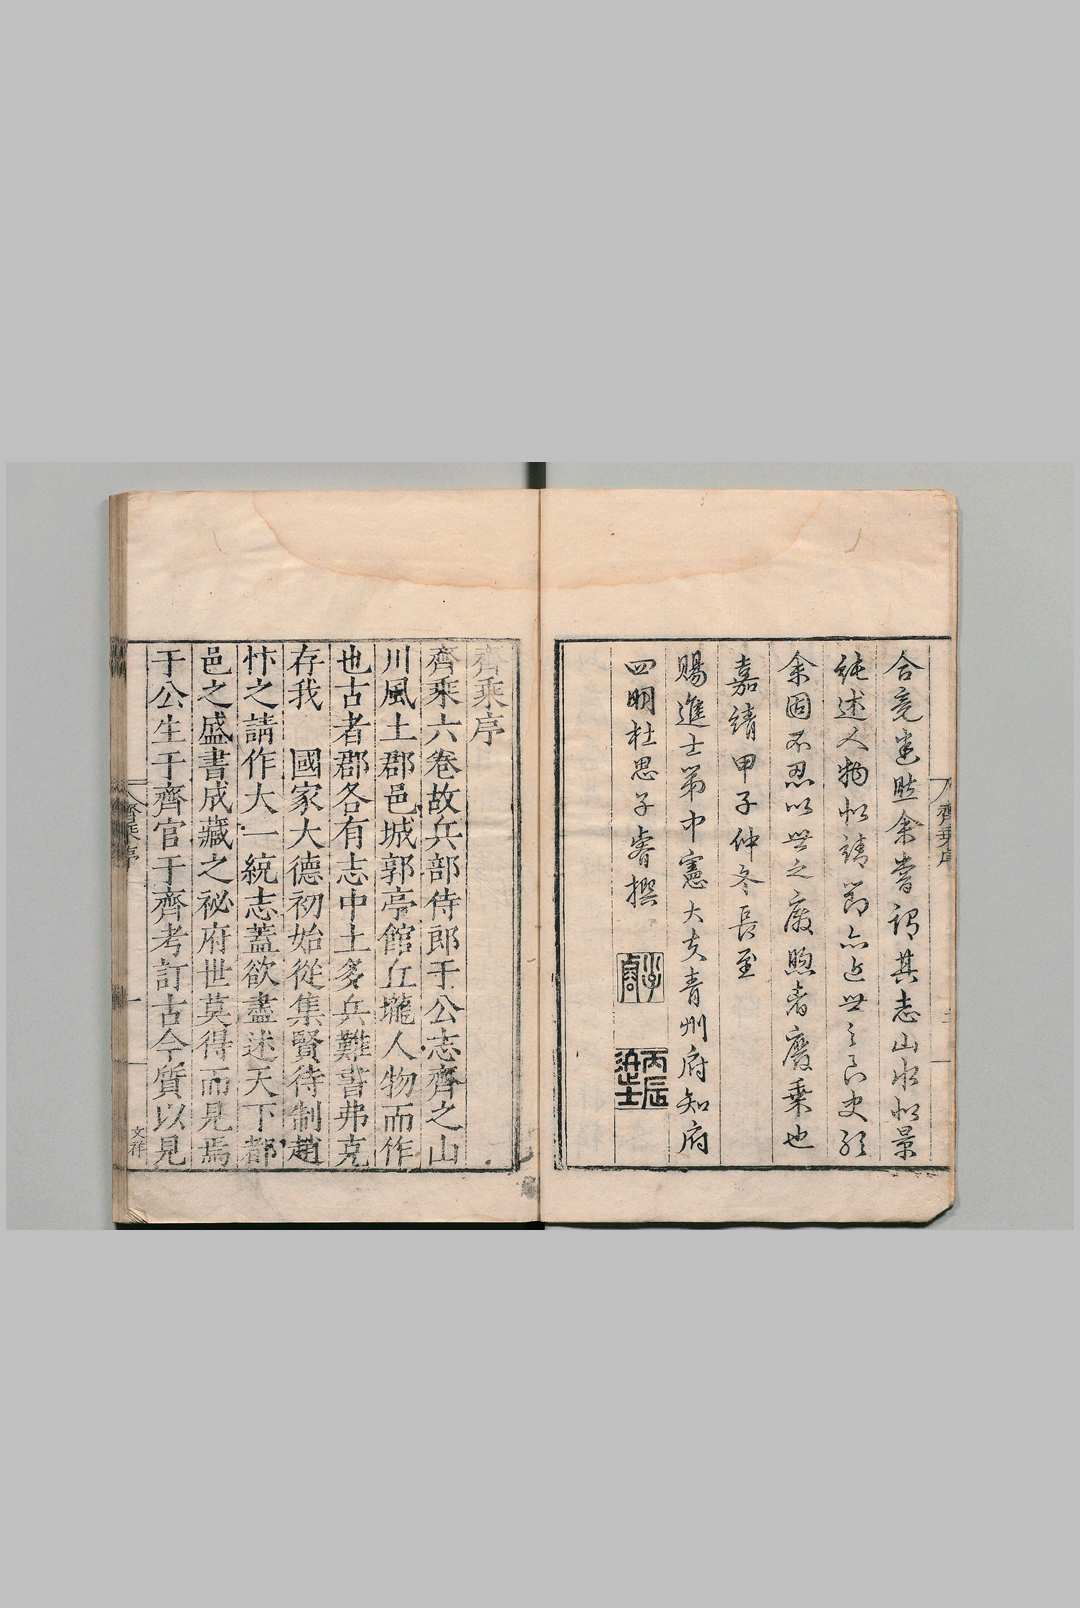 純述人物似靖節亦近世之良史
余固不忍以世之廢 者廢乗也
嘉靖甲子仲冬長至
賜進士第中憲大夫青州府知府
四明杜思子睿撰
子睿
丙辰進士
齊乗序
齊乗序
齊乗六卷故兵部侍郎于公志齊之山
川風土郡邑城郭亭館丘壠人物而作
也古者郡各有志中土多兵難書弗克
存我 國家大德初始從集賢待制趙
忭之請作大一統志蓋欲盡述天下都
邑之盛書成藏之祕府世莫得而見焉
于公生于齊官于齊考訂古今質以見
齊乗序
一
文祥